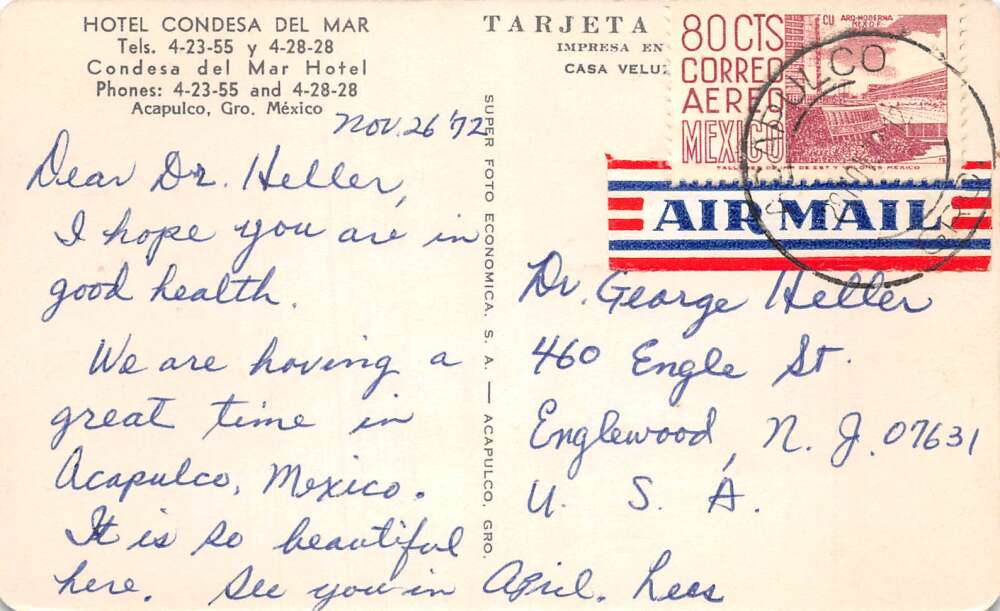 HOTEL CONDESA DEL MAR
Tels. 4-23-55 y 4-28-28
Condesa del Mar Hotel
Phones: 4-23-55 and 4-28-28
Acapulco, Gro. México
Nov. 26 '72
Dear Dr. Heller,
I hope you are in
good health.
We are having a
great time in
Acapulco, Mexico.
It is so beautiful
here. See you in April. Lees
SUPER FOTO ECONOMICA, S. A. — ACAPULCO, GRO.
TARJETA
IMPRESA EN
CASA
80 CTS
CORREO
AEREO
MEXICO
CU ARQ-MODERNA
MEX D.F.
ACAPULCO
AIR MAIL
Dr. George Heller
460 Engle St.
Englewood, N. J. 07631
U. S. A.